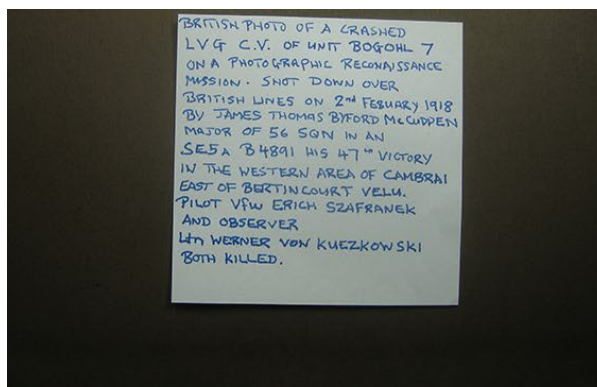 BRITISH PHOTO OF A CRASHED
LVG C.V. OF UNIT BOGOHL 7
ON A PHOTOGRAPHIC RECONAISSANCE
MISSION. SHOT DOWN OVER
BRITISH LINES ON 2nd FEBUARY 1918
BY JAMES THOMAS BYFORD McCUDDEN
MAJOR OF 56 SQN IN AN
SE5A B4891 HIS 47th VICTORY
IN THE WESTERN AREA OF CAMBRAI
EAST OF BERTINCOURT VELU.
PILOT Vfw ERICH SZAFRANEK
AND OBSERVER
Ltn WERNER VON KUEZKOWSKI
BOTH KILLED.